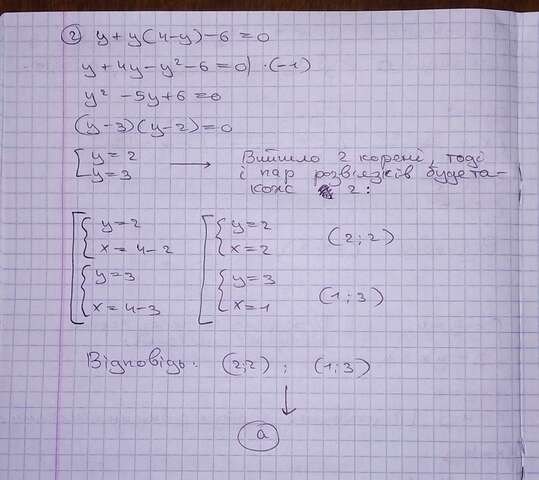 2 y + y(4-y) - 6 = 0
y + 4y - y² - 6 = 0 | ·(-1)
y² - 5y + 6 = 0
(y-3)(y-2) = 0
[ y = 2
y = 3
→ Вийшло 2 корені, тоді
і пар розв'язків буде та-
кож 2:
[ { y = 2
x = 4-2
{ y = 3
x = 4-3
[ { y = 2
x = 2
{ y = 3
x = 1
(2; 2)
(1; 3)
Відповідь: (2;2) ; (1;3)
↓
а